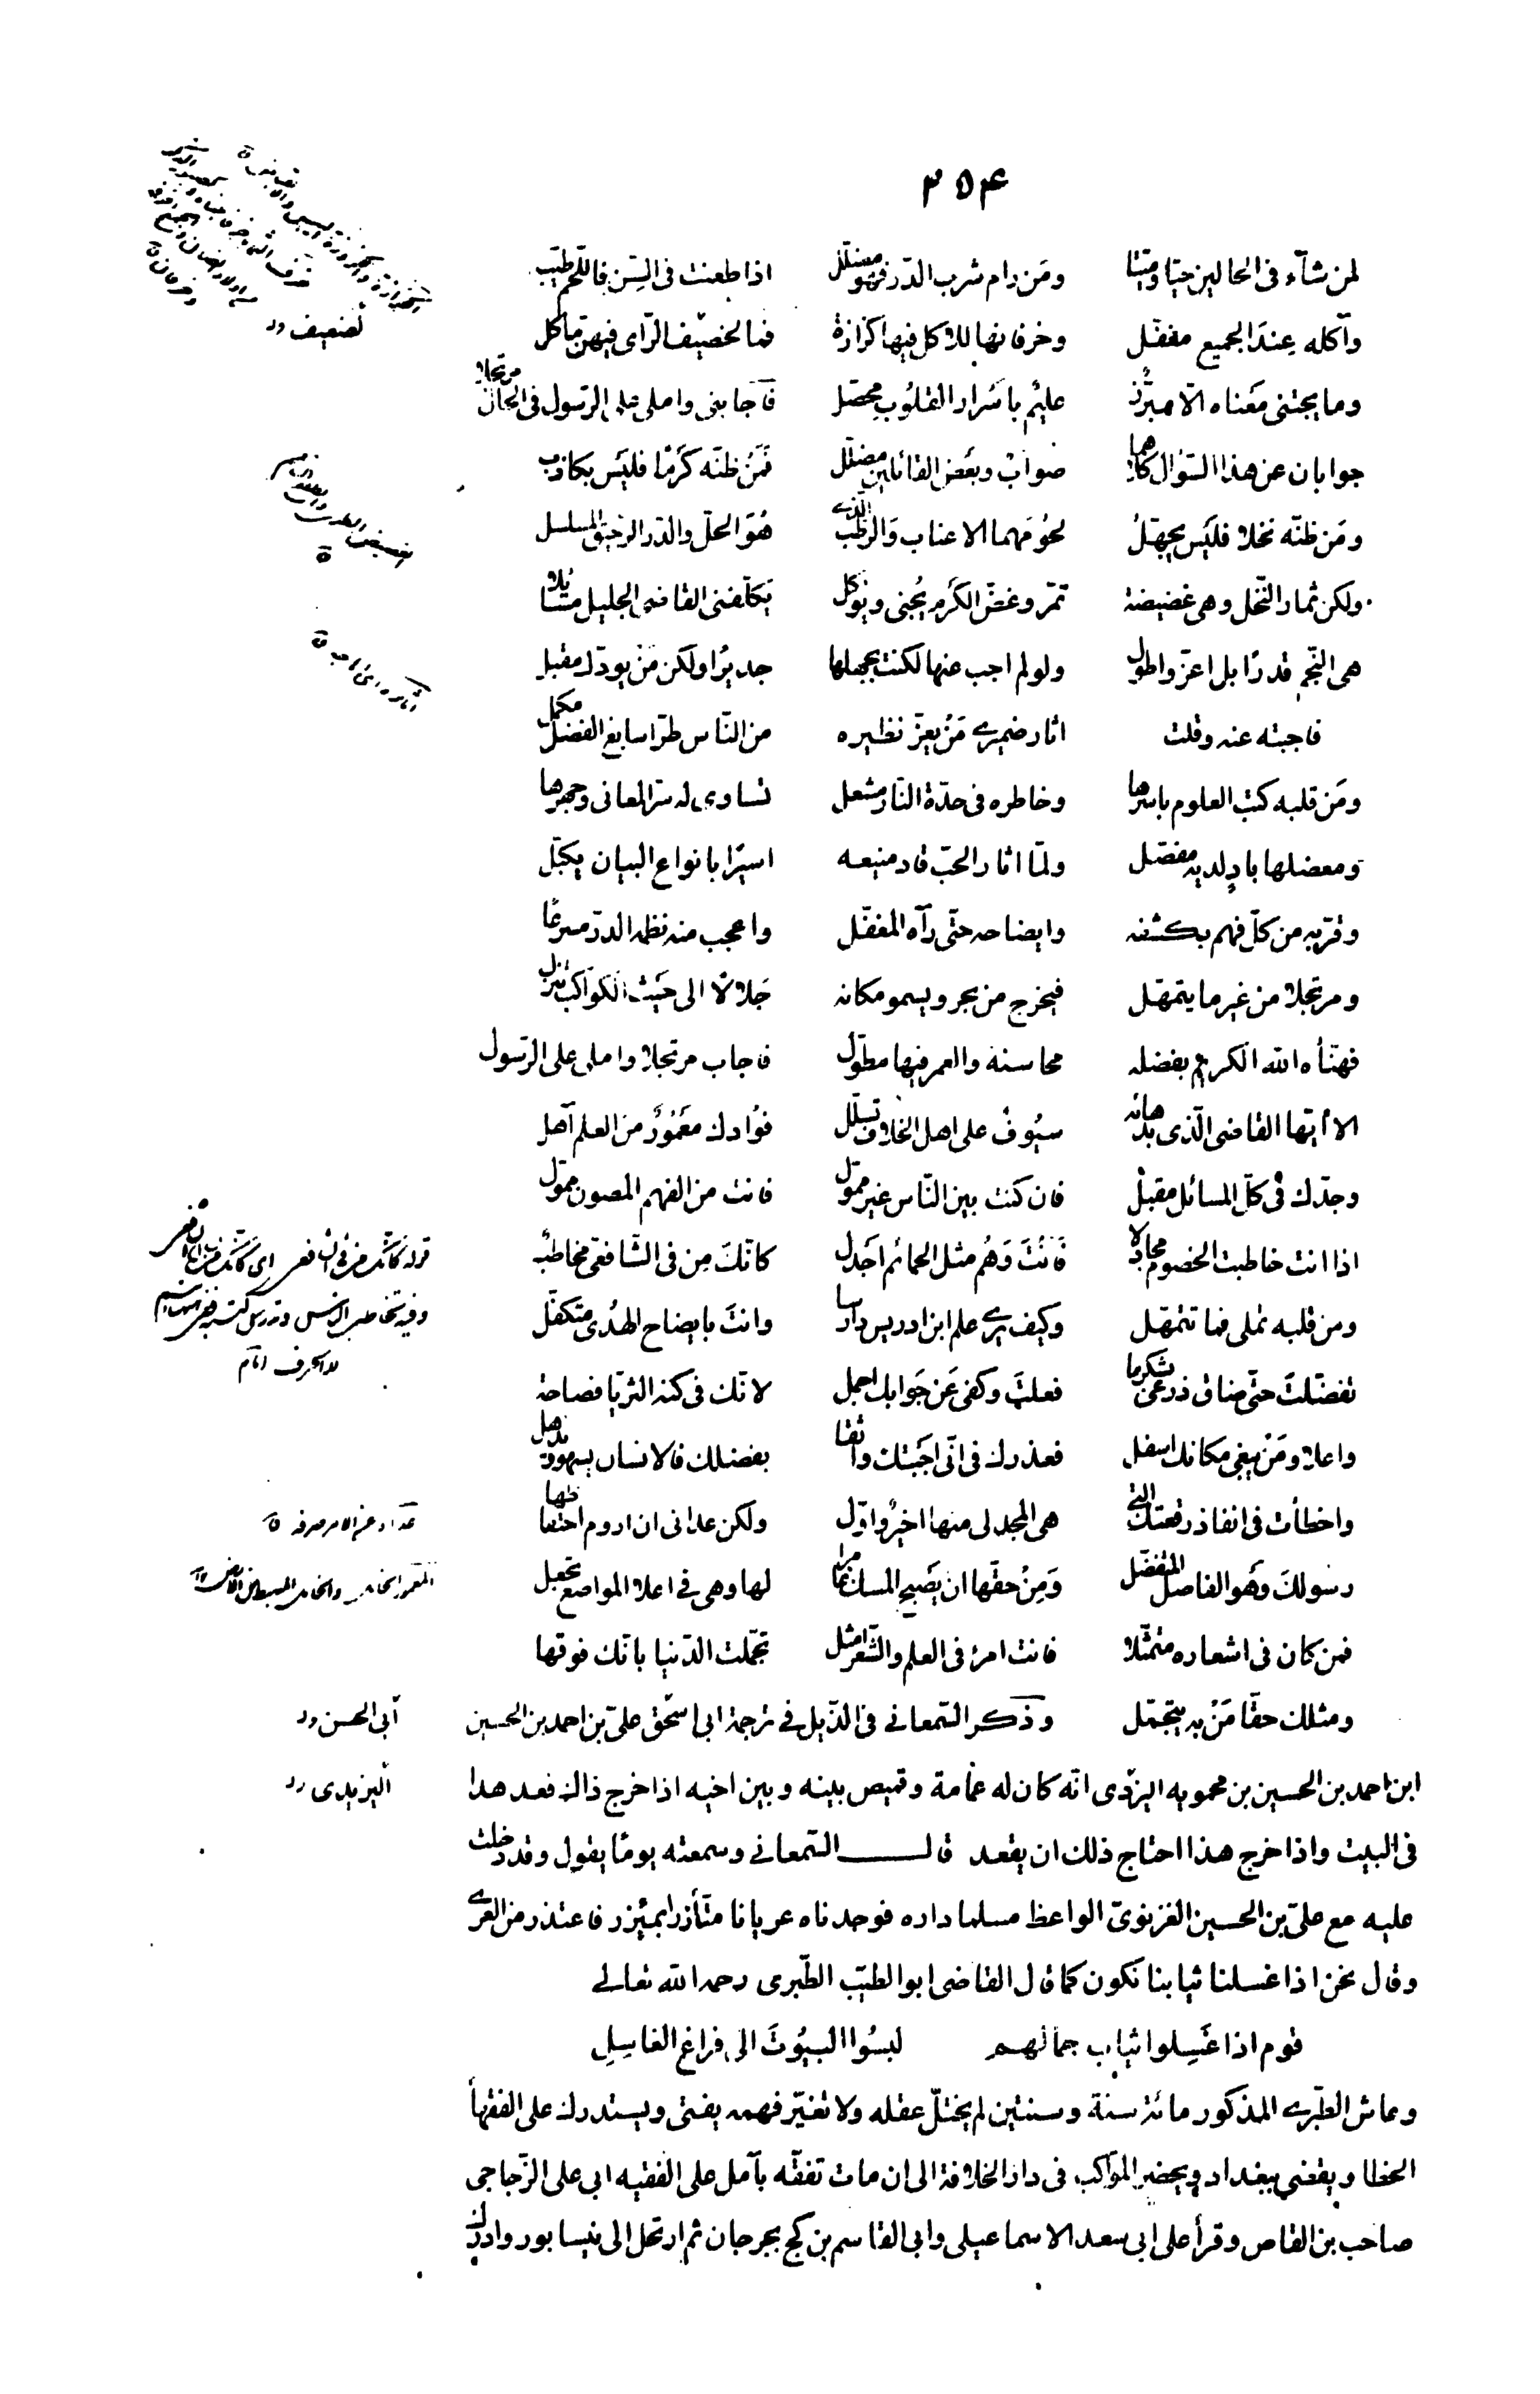 ٢٥٤
لمن شآء فى الحالين حيّا وميّتا ومَن رام شرب الدّر فهو مضلّل اذا طعنت فى السّن فاللّحم طيّب
وآكله عِندَ الجميع مغفّل وخرفانها للاكل فيها كزازة فما لخصيف الرّاى فيهنّ مأكل
وما يجتنى مَعناه الّا مبرَّز عليْم باسْرار القلوُب محصّل فآجابنى واملى على الرّسول فى الحال مرتجلا
جوابان عن هذا السّؤال كلاهما صَوابٌ وبعَض القائلين مضلّل فَمَنْ ظنّه كَرمًا فليَس بكاذب
ومَن ظنّه نخلا فليَس يجهّلُ لحوُمهما الاعناب وَالرطب الّذى هُوَ الحلّ والدّر الرّحيق المسلسل
ولكن ثمار النّخل وهى غضيضة تمّر وغضّ الكرَم يُجنى ويؤكل يكلّفنى القاضى الجليل مسَائلا
هى النّجم قدرًا بل اعزّ واطول ولو لم اجب عنها لكنت بجهلها جديرًا ولكن مَنْ يودّك مقبل
فاجبته عنه وقلت اثار ضميرى مَنْ يعزّ نظيره من النّاس طرّا سابغ الفضل مكمل
ومَن قلبه كتب العلوم باسرها وخاطره فى حدّة النّار مشعل تساوى له سرّ المعانى وجهرها
ومعضلها بادٍ لديه مفصّل ولمّا اثار الحبّ قاد منيعه اسيرًا بانواع البيان يكبّل
وقرّبه من كلّ فهم بكشفه وايضاحه حتّى رآه المغفّل واعجب منه نظمه الدرّ مسرعًا
ومرتجلا من غير ما يتمهّل فيخرج من بحر ويسمو مكانه جَلالًا الى حَيث الكوَاكب تنزل
فهنّأه الله الكريم بفضله محاسنه والعمر فيها مطوّل فاجاب مرتجلا واملى على الرّسول
الا ايّها القاضى الّذى بدهائه سيُوفٌ على اهل الخلاف تسلّل فؤادك مَعَمُورٌ من العلم آهل
وجدّك فى كلّ المسائل مقبلٌ فان كنت بين النّاس غير مموّل فانت من الفهم المصون مموّل
اذا انت خاطبت الخصوم مجادلا فَاَنْتَ وَهُم مثل الحمائم اَجَدل كانّكَ مِن فى الشّافعى مخاطبٌ
ومن قلبه تملى فما تتمهّل وكيف يرى علم ابن ادريس دارسا وانتَ بايضاح الهدُى متكفّل
تفضّلتَ حتّى ضاق ذرعى بشكرما فعلتَ وكفى عَن جَوابك اجمل لانّك فى كنه الثريّا فصاحة
واعلا ومَنْ يبغى مكانك اسفل فعذرك فى انّى اجَبتك واثقا بفضلك فالانسان يسهو ويذهل
واخطأت فى انفاذ رقعتك الّتى هى المجد لى منها اخيرٌ واوّل ولكن عدانى ان اروم احتفاظها
رسولكَ وهُو الفاضل المتفضّل وَمِنْ حقّها ان يصَبح المسك غامرا لها وهى فى اعلا المواضع تجعل
فمن كان فى اشعاره متمثّلا فانت امرؤ فى العلم والشّعر امثل تجمّلت الدّنيا بانّك فوقها
ومثلك حقّا مَنْ به يتجمّل وذكر السّمعانى فى الذّيل فى ترجمة ابى اسحٰق علىّ بن احمد بن الحسين
ابن احمد بن الحسين بن محمويه اليزدى انّه كان له عمامة وقميص بينه وبين اخيه اذا خرج ذاك قعد هذا
فى البيت واذا خرج هذا احتاج ذلك ان يقعد قال السّمعانى وسمعته يومًا يقول وقد دخلت
عليه مع علىّ بن الحسين الغزنوىّ الواعظ مسلما داره فوجدناه عريانا متأزرا بمئزر فاعتذر من العرى
وقال نحن اذا غسلنا ثيابنا نكون كما قال القاضى ابو الطيّب الطّبرى رحمه الله تعالى
قوم اذا غَسِلوا ثياب جمالهم لبسُوا البيُوتَ الى فراغ الغاسِلِ
وعاش الطبّرى المذكور مائة سنة وسنتين لم يختلّ عقله ولا تغيّر فهمه يفتى ويستدرك على الفقهأ
الخطا ويقضى ببغداد ويحضر الموَاكب فى دار الخلافة الى ان مات تفقّه بآمل على الفقيه ابى على الزّجاجى
صاحب بن القاص وقرأ على ابى سعد الاسماعيلى وابى القاسم بن كج بجرجان ثم ارتحل الى نيسابور وادرك
تضعيف
قوله كانّك من فى الشافعى
ابى الحسن
اليزيدى